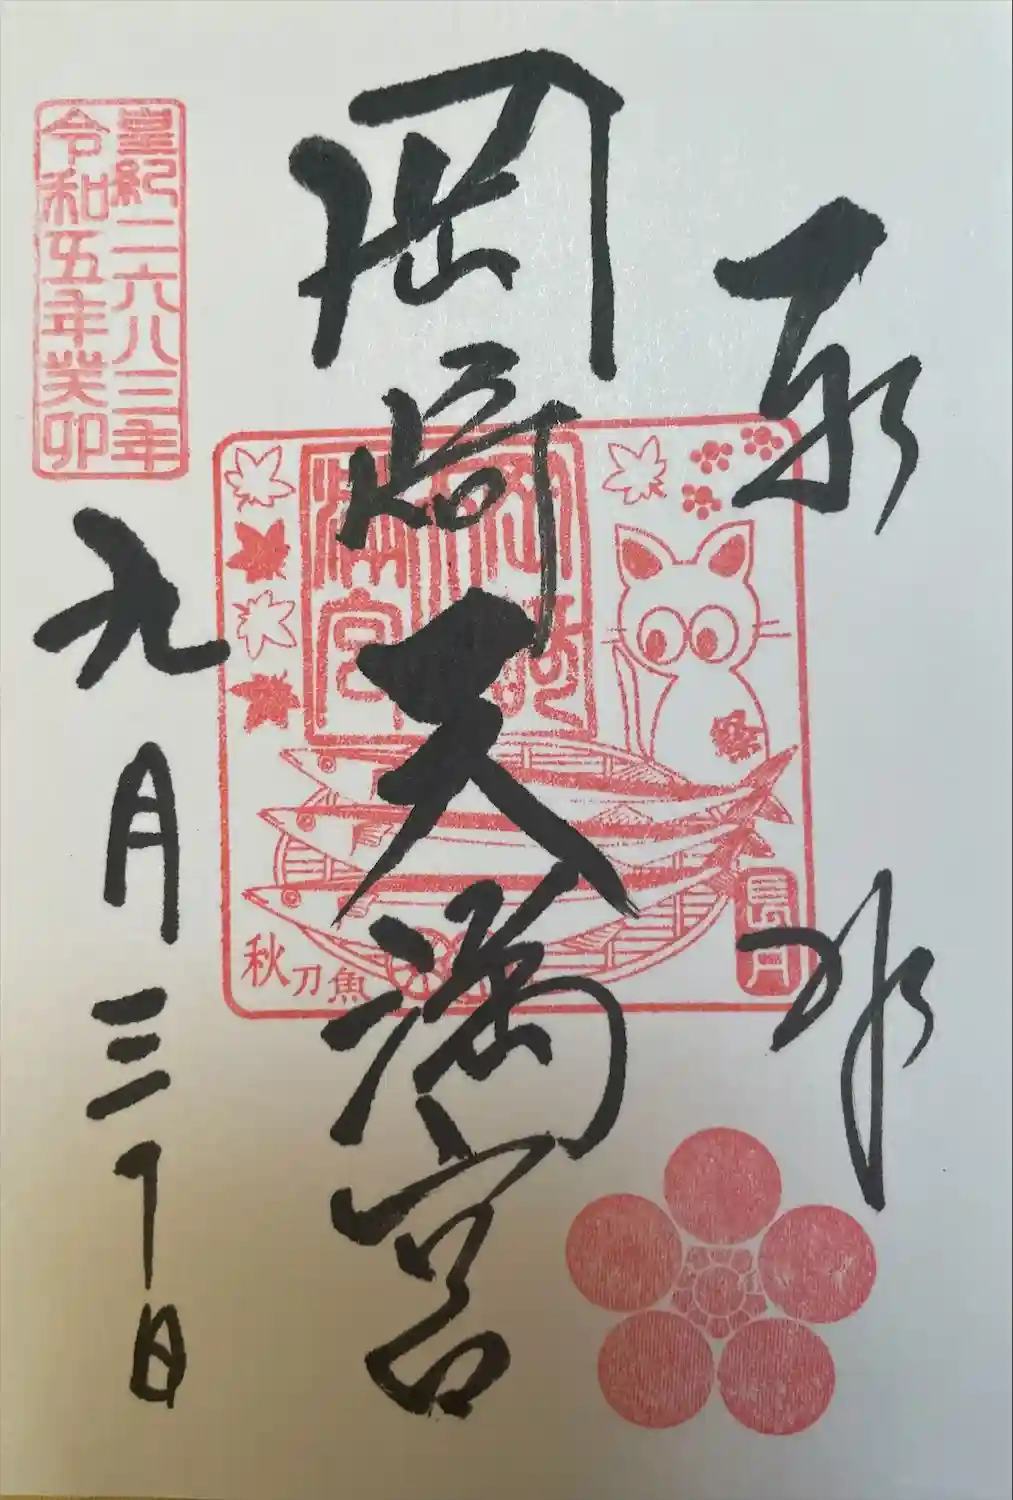 岡崎天満宮
皇紀二六八三年
令和五年癸卯
九月三十日
岡崎天満宮
秋刀魚
長月